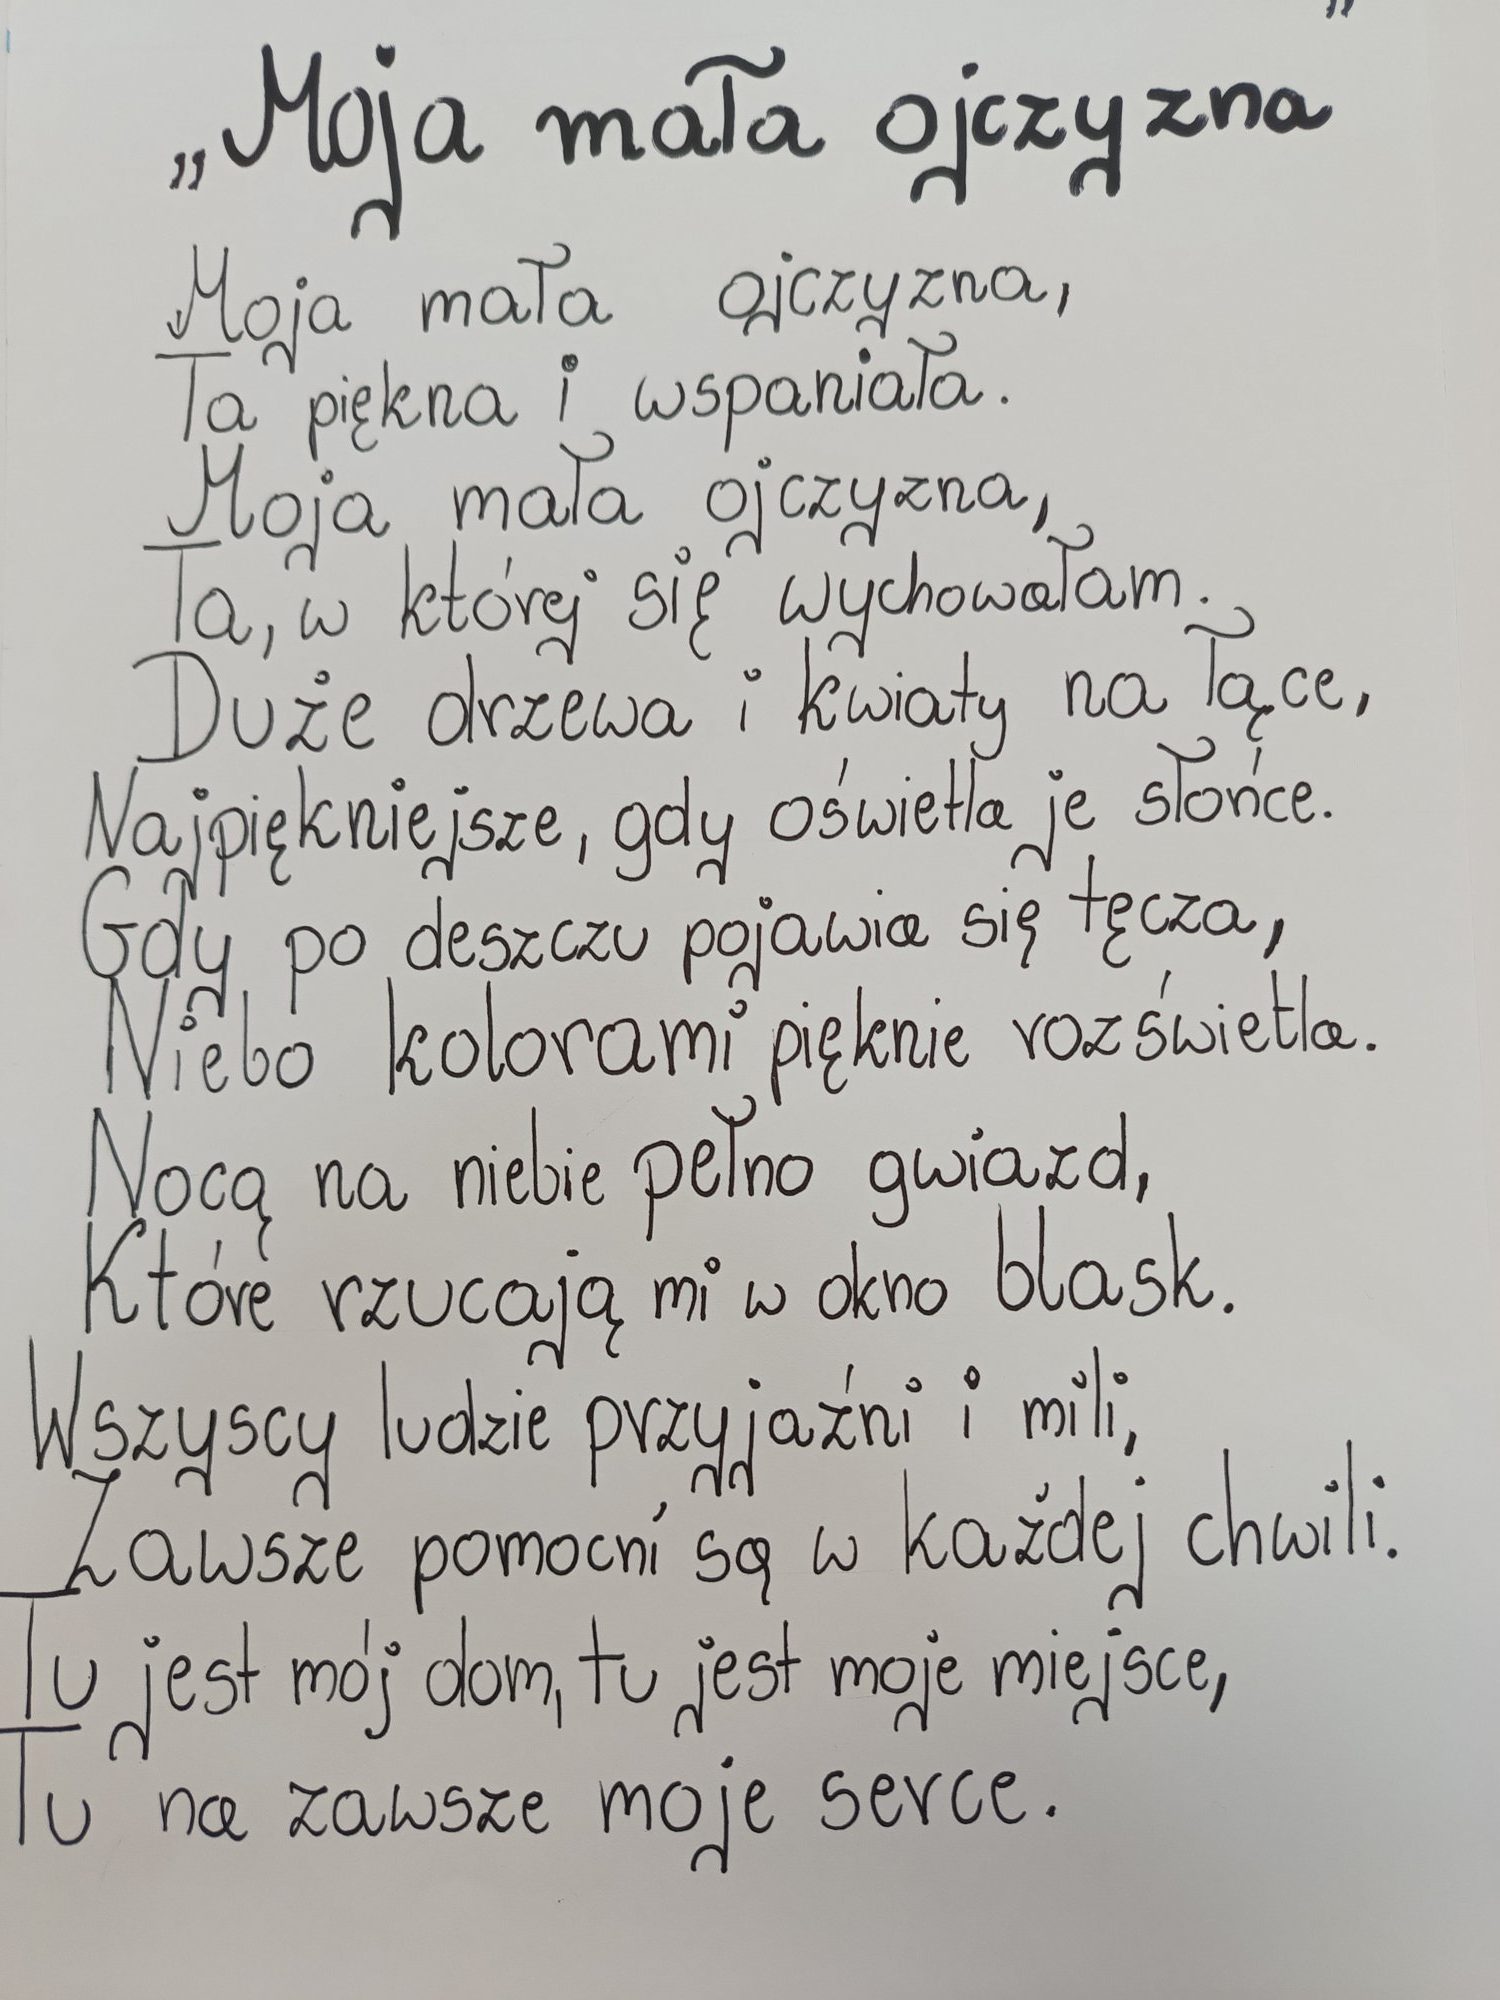 „Moja mała ojczyzna”
Moja mała ojczyzna,
Ta piękna i wspaniała.
Moja mała ojczyzna,
Ta, w której się wychowałam.
Duże drzewa i kwiaty na łące,
Najpiękniejsze, gdy oświetla je słońce.
Gdy po deszczu pojawia się tęcza,
Niebo kolorami pięknie rozświetla.
Nocą na niebie pełno gwiazd,
Które rzucają mi w okno blask.
Wszyscy ludzie przyjaźni i mili,
Zawsze pomocni są w każdej chwili.
Tu jest mój dom, tu jest moje miejsce,
Tu na zawsze moje serce.